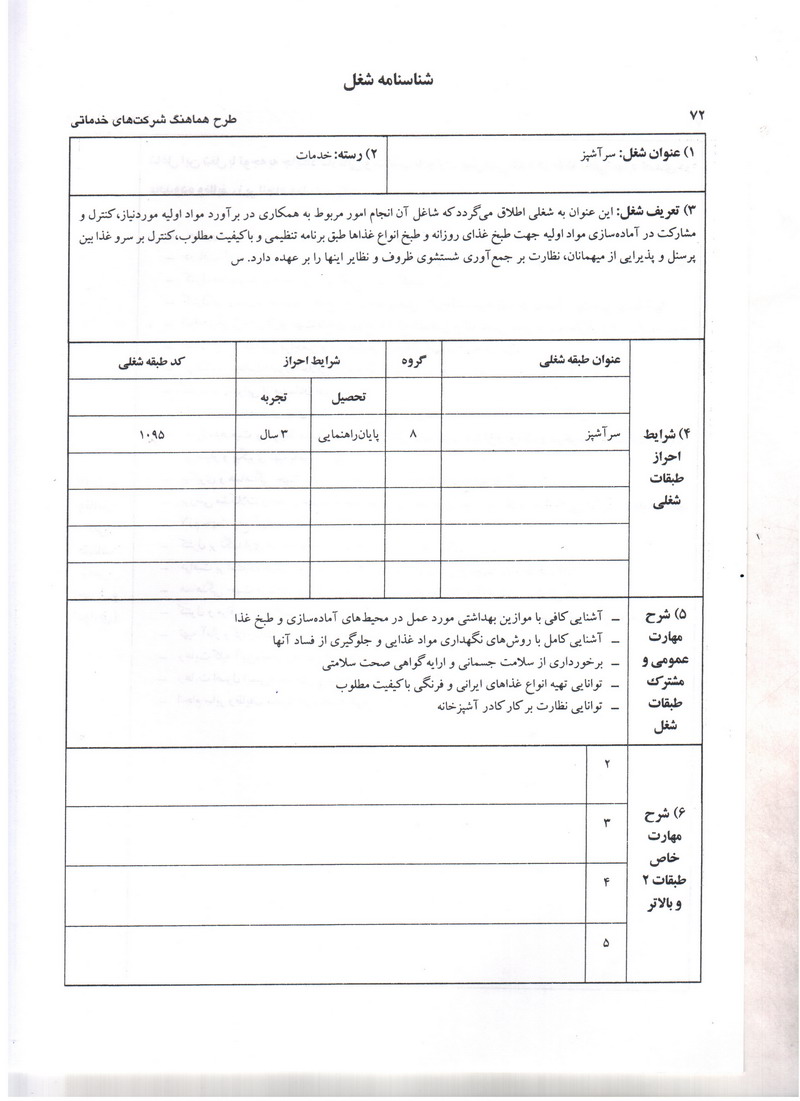 شناسنامه شغل
۷۲
طرح هماهنگ شرکت‌های خدماتی
۱) عنوان شغل: سرآشپز
۲) رسته: خدمات
۳) تعریف شغل: این عنوان به شغلی اطلاق می‌گردد که شاغل آن انجام امور مربوط به همکاری در برآورد مواد اولیه موردنیاز، کنترل و
مشارکت در آماده‌سازی مواد اولیه جهت طبخ غذای روزانه و طبخ انواع غذاها طبق برنامه تنظیمی و باکیفیت مطلوب، کنترل بر سرو غذا بین
پرسنل و پذیرایی از میهمانان، نظارت بر جمع‌آوری شستشوی ظروف و نظایر اینها را بر عهده دارد. س
۴) شرایط
احراز
طبقات
شغلی
عنوان طبقه شغلی
گروه
شرایط احراز
کد طبقه شغلی
تحصیل
تجربه
سرآشپز
۸
پایان راهنمایی
۳ سال
۱۰۹۵
۵) شرح
مهارت
عمومی و
مشترک
طبقات
شغل
– آشنایی کافی با موازین بهداشتی مورد عمل در محیط‌های آماده‌سازی و طبخ غذا
– آشنایی کامل با روش‌های نگهداری مواد غذایی و جلوگیری از فساد آنها
– برخورداری از سلامت جسمانی و ارایه گواهی صحت سلامتی
– توانایی تهیه انواع غذاهای ایرانی و فرنگی باکیفیت مطلوب
– توانایی نظارت بر کار کادر آشپزخانه
۶) شرح
مهارت
خاص
طبقات ۲
و بالاتر
۲
۳
۴
۵